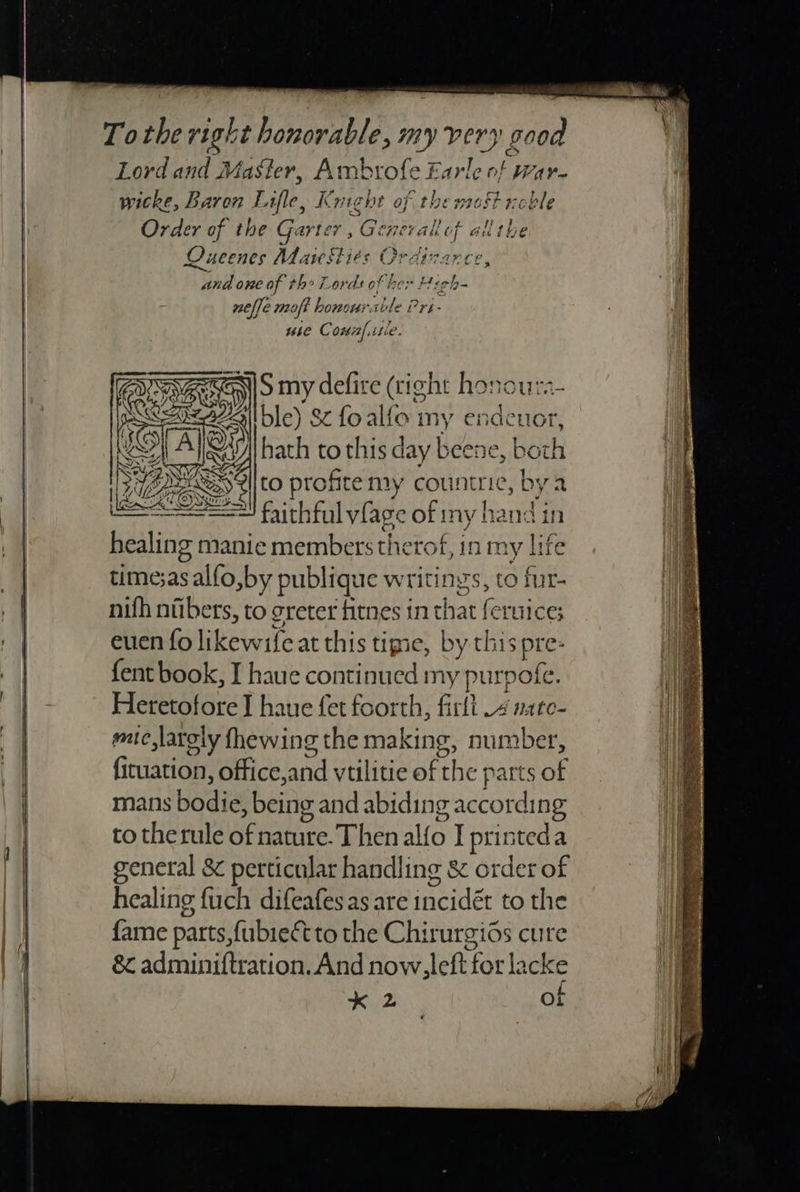 To the right honorable, my very good
Lord and Maſter, Ambroſe Earle of War-
wicke, Baron Liſle, Knight of the moſt noble
Order of the Garter, Generall of all the
Queenes Maieſties Ordinance,
and one of the Lords of her High-
neſſe moſt honourable Pri-
uie Counſaile.
AS my deſire (right honoura-
ble) & ſo alſo my endeuor,
hath to this day beene, both
to profite my countrie, by a
faithful vſage of my hand in
healing manie members therof, in my life
time; as alſo, by publique writings, to fur-
niſh nūbers, to greter fitnes in that ſeruice;
euen ſo likewiſe at this time, by this pre-
ſent book, I haue continued my purpoſe.
Heretofore I haue ſet foorth, firſt Anato-
mie, largly ſhewing the making, number,
ſituation, office, and vtilitie of the parts of
mans bodie, being and abiding according
to the rule of nature. Then alſo I printed a
general & perticular handling & order of
healing ſuch diſeaſes as are incidēt to the
ſame parts, ſubiect to the Chirurgiōs cure
& adminiſtration. And now, left for lacke
* 2 of